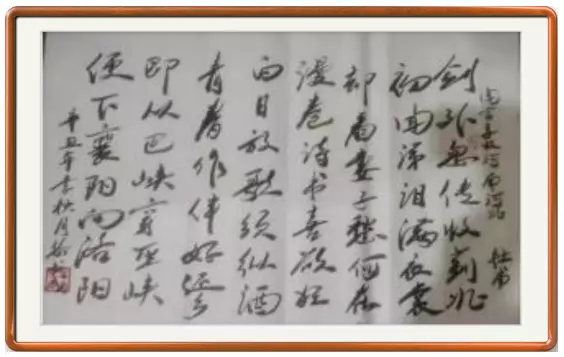 闻官军收河南河北 杜甫
剑外忽传收蓟北
初闻涕泪满衣裳
却看妻子愁何在
漫卷诗书喜欲狂
白日放歌须纵酒
青春作伴好还乡
即从巴峡穿巫峡
便下襄阳向洛阳
辛丑年季秋月